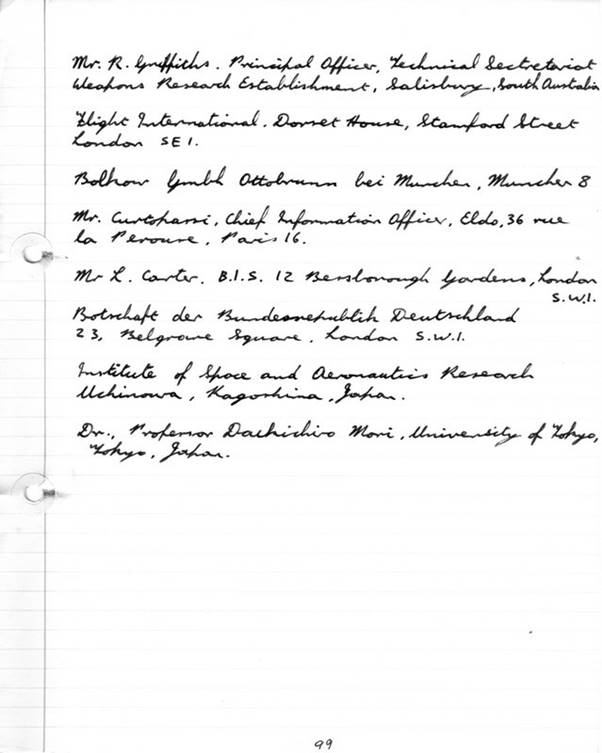 Mr. R. Griffiths. Principal Officer, Technical Sectretariat
Weapons Research Establishment, Salisbury, South Australia
Flight International. Dorset House, Stamford Street
London SE1.
Bolkow Gmbh Ottobrunn bei Munchen, Munchen 8
Mr. Curtohassi, Chief Information Officer, Eldo, 36 rue
la Perouse, Paris 16.
Mr L. Carter. B.I.S. 12 Bessborough Gardens, London
S.W.1.
Botschaft der Bundesrepublik Deutschland
23, Belgrave Square, London S.W.1.
Institute of Space and Aeronautics Research
Uchinowa, Kagoshina, Japan.
Dr., Professor Daikichiro Mori, University of Tokyo,
Tokyo, Japan.
99